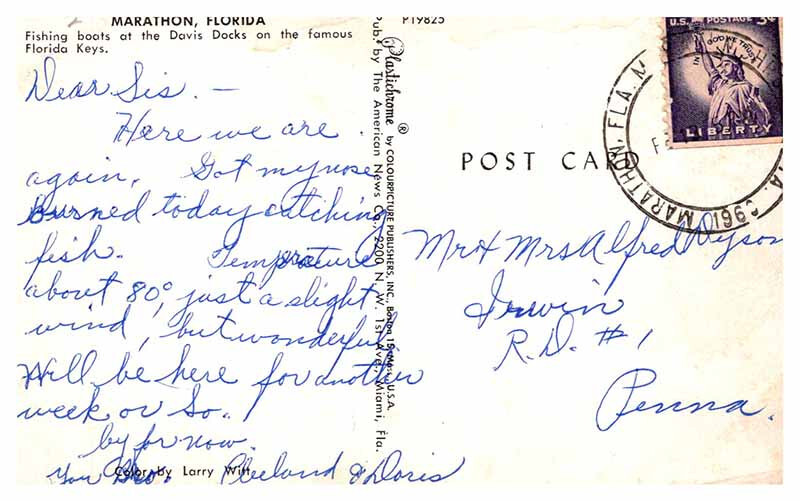 MARATHON, FLORIDA
Fishing boats at the Davis Docks on the famous
Florida Keys.
Dear Sis. —
Here we are
again. Got my nose
burned today catching
fish. Temperature
about 80°, just a slight
wind, but wonderful
Will be here for another
week or so.
by for now.
Your Bro. Cleeland & Doris
Color by Larry Witt
Pub. by The American News Co., 2200 N. W. 1st Ave., Miami, Fla
Plastichrome ® by COLOURPICTURE PUBLISHERS, INC., Boston 15, Mass., U.S.A.
P19825
POST CARD
U.S. POSTAGE 3¢
IN GOD WE TRUST
LIBERTY
MARATHON, FLA.
1961
Mr & Mrs Alfred Dyson
Irwin
R.D. #1
Penna.